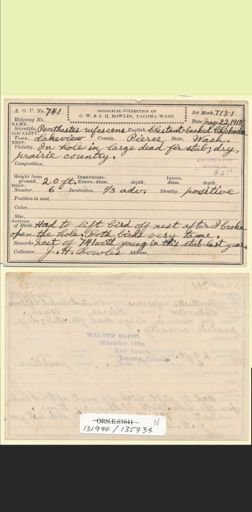 A. O. U. No. 741
OOLOGICAL COLLECTION OF
C. W. & J. H. BOWLES, TACOMA, WASH.
Set Mark 713-1
Ridgway No.
Date May 22, 1915
NAME
Scientific, Penthestes rufescens English, Chestnut-backed Chickadee
LOCALITY
Town, Lakeview County, Pierce State, Wash.
NEST:
Vicinity, In hole in large dead fir stub; dry,
prairie country.
Composition,
Height from ground, 20 ft. DIMENSIONS: Extern. diam. depth. Intern. diam. depth.
EGGS:
Number, 6 Incubation, 1/3 adv. Identity, positive
Position in nest
Color,
Size,
Actions of Birds, Had to lift bird off nest after I broke
open the hole. Both birds very tame.
Remarks, nest of 741 with young in this stub last year.
Collector, J. H. Bowles
WALTER RAINE,
Waverley Villa,
Kew Beach,
Toronto, Canada
ORN.E.63041
131940 / 135934 N